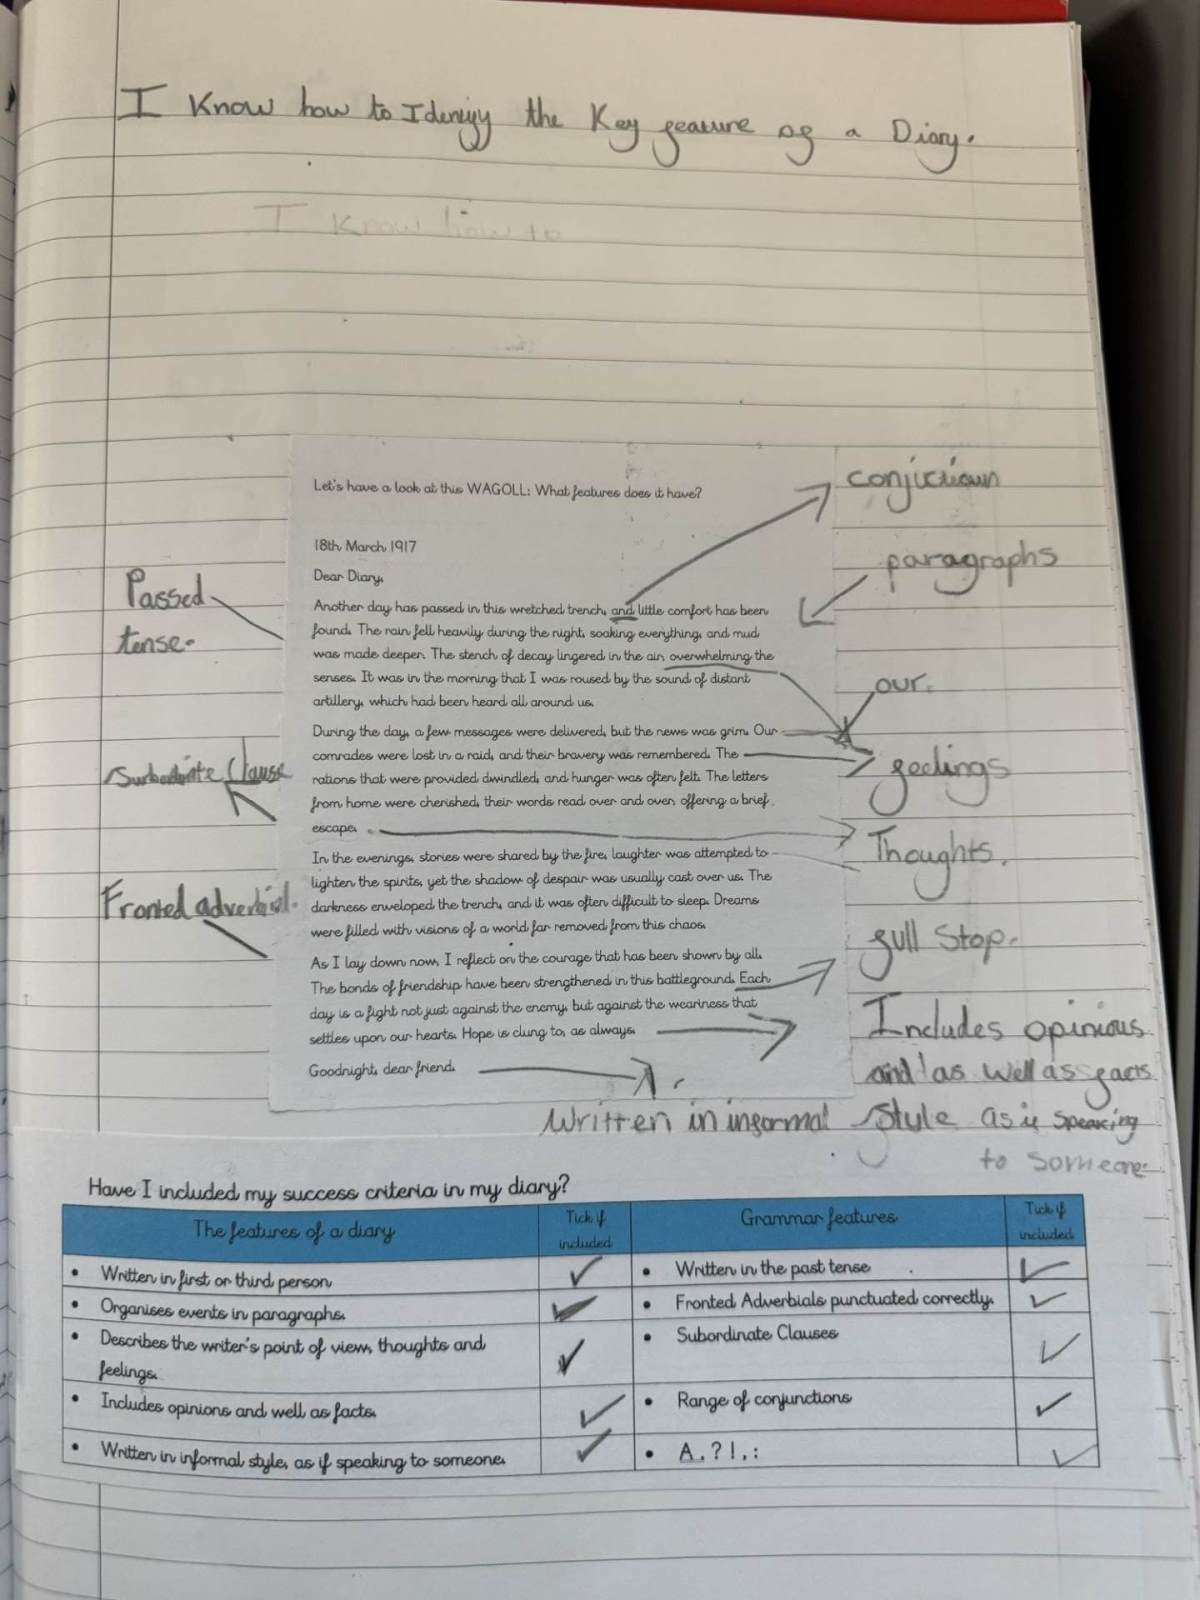 I Know how to Idenify the Key feature of a Diary.
I Know how to
Let's have a look at this WAGOLL: What features does it have?
conjuctiown
18th March 1917
paragraphs
Dear Diary,
Passed
tense.
Another day has passed in this wretched trench, and little comfort has been
found. The rain fell heavily during the night, soaking everything, and mud
was made deeper. The stench of decay lingered in the air, overwhelming the
senses. It was in the morning that I was roused by the sound of distant
artillery, which had been heard all around us.
our.
During the day, a few messages were delivered, but the news was grim. Our
comrades were lost in a raid, and their bravery was remembered. The
rations that were provided dwindled, and hunger was often felt. The letters
from home were cherished, their words read over and over, offering a brief
escape.
Surbordinte Clause
feelings
Thoughts.
In the evenings, stories were shared by the fire, laughter was attempted to
lighten the spirits, yet the shadow of despair was usually cast over us. The
darkness enveloped the trench, and it was often difficult to sleep. Dreams
were filled with visions of a world far removed from this chaos.
Fronted adverbial.
full Stop.
As I lay down now, I reflect on the courage that has been shown by all.
The bonds of friendship have been strengthened in this battleground. Each
day is a fight not just against the enemy, but against the weariness that
settles upon our hearts. Hope is clung to, as always.
Goodnight, dear friend.
Includes opinious
and as well as facts
Written in informal style as if speaking
to someone.
Have I included my success criteria in my diary?
The features of a diary
Tick if
included
Grammar features
Tick if
included
• Written in first or third person
• Written in the past tense
• Organises events in paragraphs.
• Fronted Adverbials punctuated correctly.
• Describes the writer's point of view, thoughts and
feelings.
• Subordinate Clauses
• Includes opinions and well as facts.
• Range of conjunctions
• Written in informal style, as if speaking to someone.
• A . ? ! , :